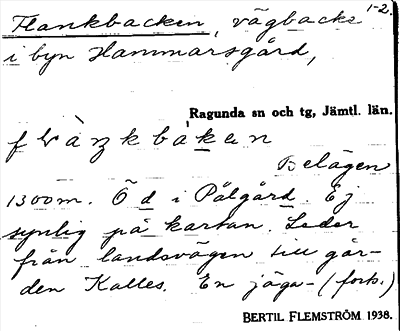 Flankbacken, vägbacke 1-2.
i byn Hammarsgård,
Ragunda sn och tg, Jämtl. län.
Belägen
1300 m. Ö d i Pålgård. Ej
synlig på kartan. Leder
från landsvägen till går-
den Kalles. En jäga- (forts.)
BERTIL FLEMSTRÖM 1938.